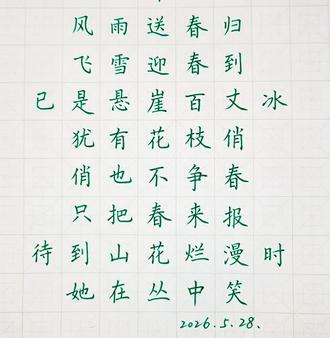 风雨送春归
飞雪迎春到
已是悬崖百丈冰
犹有花枝俏
俏也不争春
只把春来报
待到山花烂漫时
她在丛中笑
2026.5.28.